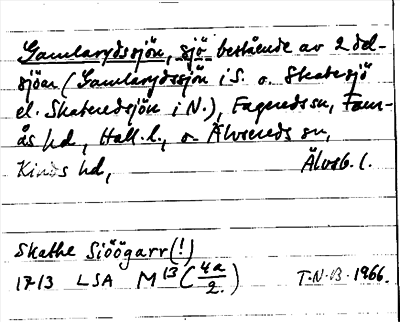 Gamlarydssjön, sjö bestående av 2 del-
sjöar (Gamlarydssjön i S. o. Skatersjö
el. Skateredsjön i N.), Fagereds sn, Faur-
ås hd, Hall. l., o. Älvsereds sn,
Kinds hd, Älvsb. l.
Skathe Siöögarr (!)
1713 LSA M 13 (4a/2.) T.N.B. 1966.